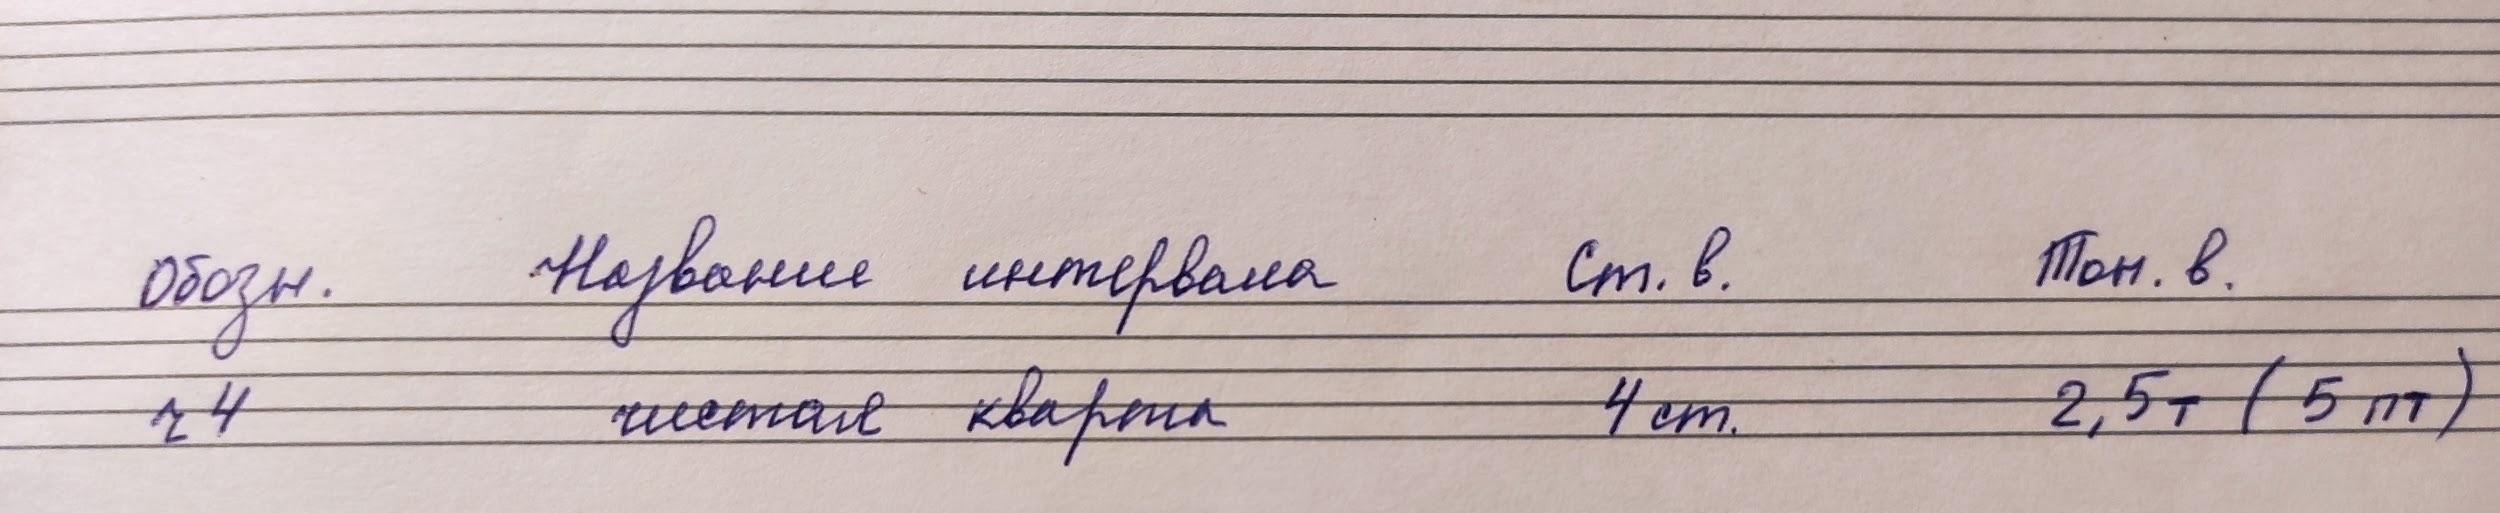 Обозн. Название интервала Ст. в. Тон. в.
ч4 чистая кварта 4 ст. 2,5т (5 пт)